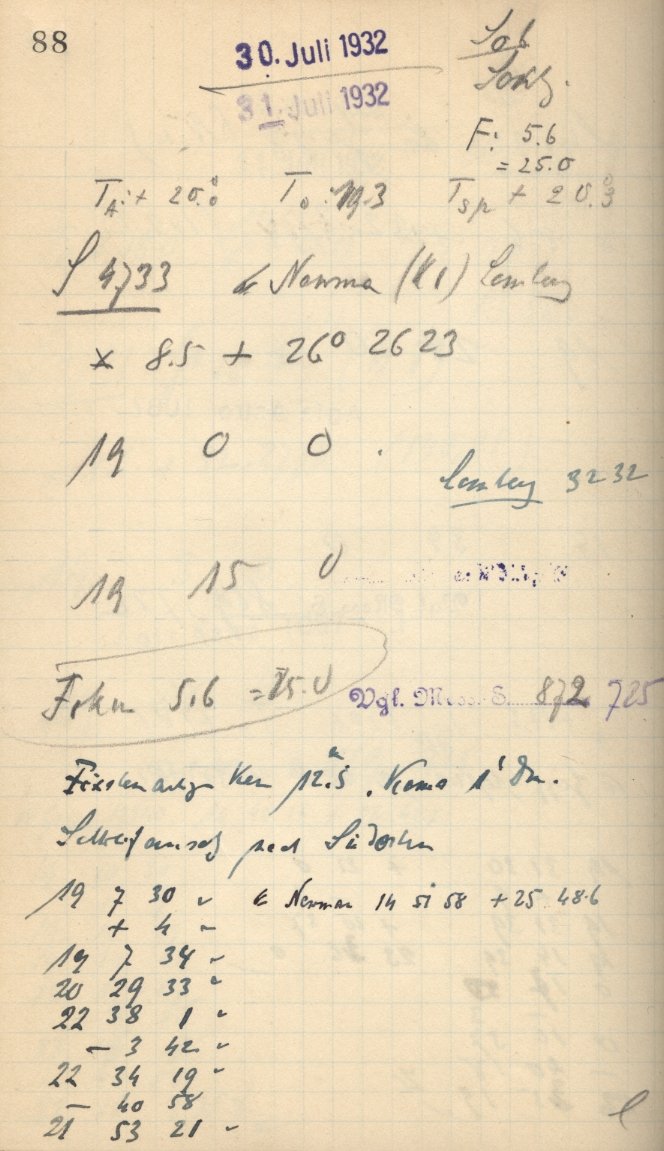 88
30. Juli 1932
31. Juli 1932
F: 5.6
= 25.0
T A: + 20.0 T o: 19.3 T sp + 20.3
S 4733 Newman (K1)
x 8.5 + 26° 26 23
19 0 0
3232
19 15 0
Fokus 5.6 = 25.0 Vgl. Mess. S. 872 725
Fixsternartiger Kern 12.5 m. Koma 1' Dm.
Schweifansatz nach Südosten
19 7 30 Newman 14 51 58 + 25 48.6
+ 4
19 7 34
20 29 33
22 38 1
- 3 42
22 34 19
- 40 58
21 53 21